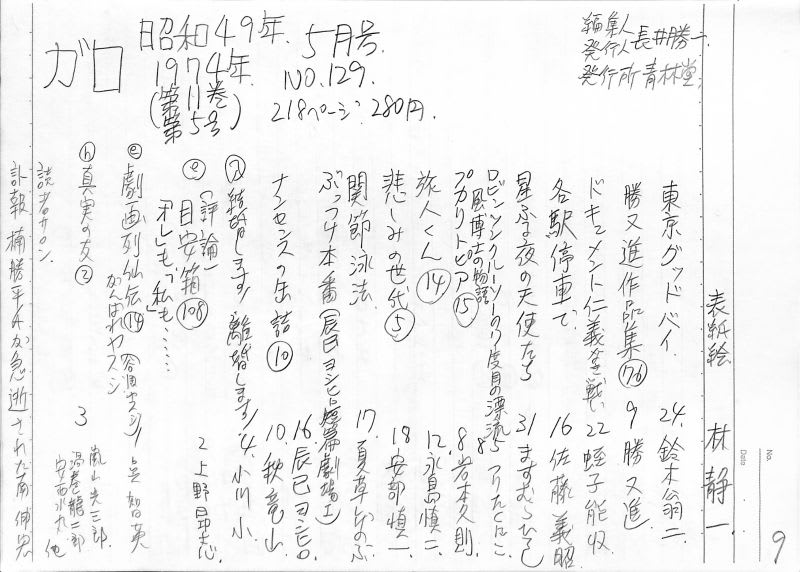 ガロ
昭和49年 5月号
1974年 NO.129.
(第11巻 第5号)
218ページ 280円.
編集人
発行人 長井勝一.
発行所 青林堂.
No.
Date
9
表紙絵 林静一
東京グッドバイ 24. 鈴木翁二
勝又進作品集(76) 9 勝又進
ドキュメント仁義なき戦い 22 蛭子能収
各駅停車で 16 佐藤義昭
星ふる夜の天使たち 31 ますむらひろし
ロビンソンクルーソーの17度目の漂流 5 つりたくにこ
風博士の物語 8
プカリトピア(15) 8 岩本久則
旅人くん(14) 12. 永島慎二
悲しみの世代(5) 18 安部慎一
関節泳法 17 夏草しのぶ
ぶっつけ本番(辰巳ヨシヒロ短篇劇場 16. 辰巳ヨシヒロ.
ナンセンスの缶詰(10) 10. 秋竜山
結婚します/離婚します/ 4. 小川小.
(評論)
(e) 目安箱(108) 2 上野昂志.
「オレ」も「私」も……
(e) 劇画列仙伝(14)(谷岡ヤスジ) 呉智英
がんばれヤスジ
(h) 真実の友(2) 3 嵐山光三郎
湯村
安西水丸 他
読者サロン
訃報 楠勝平氏が急逝された 南伸